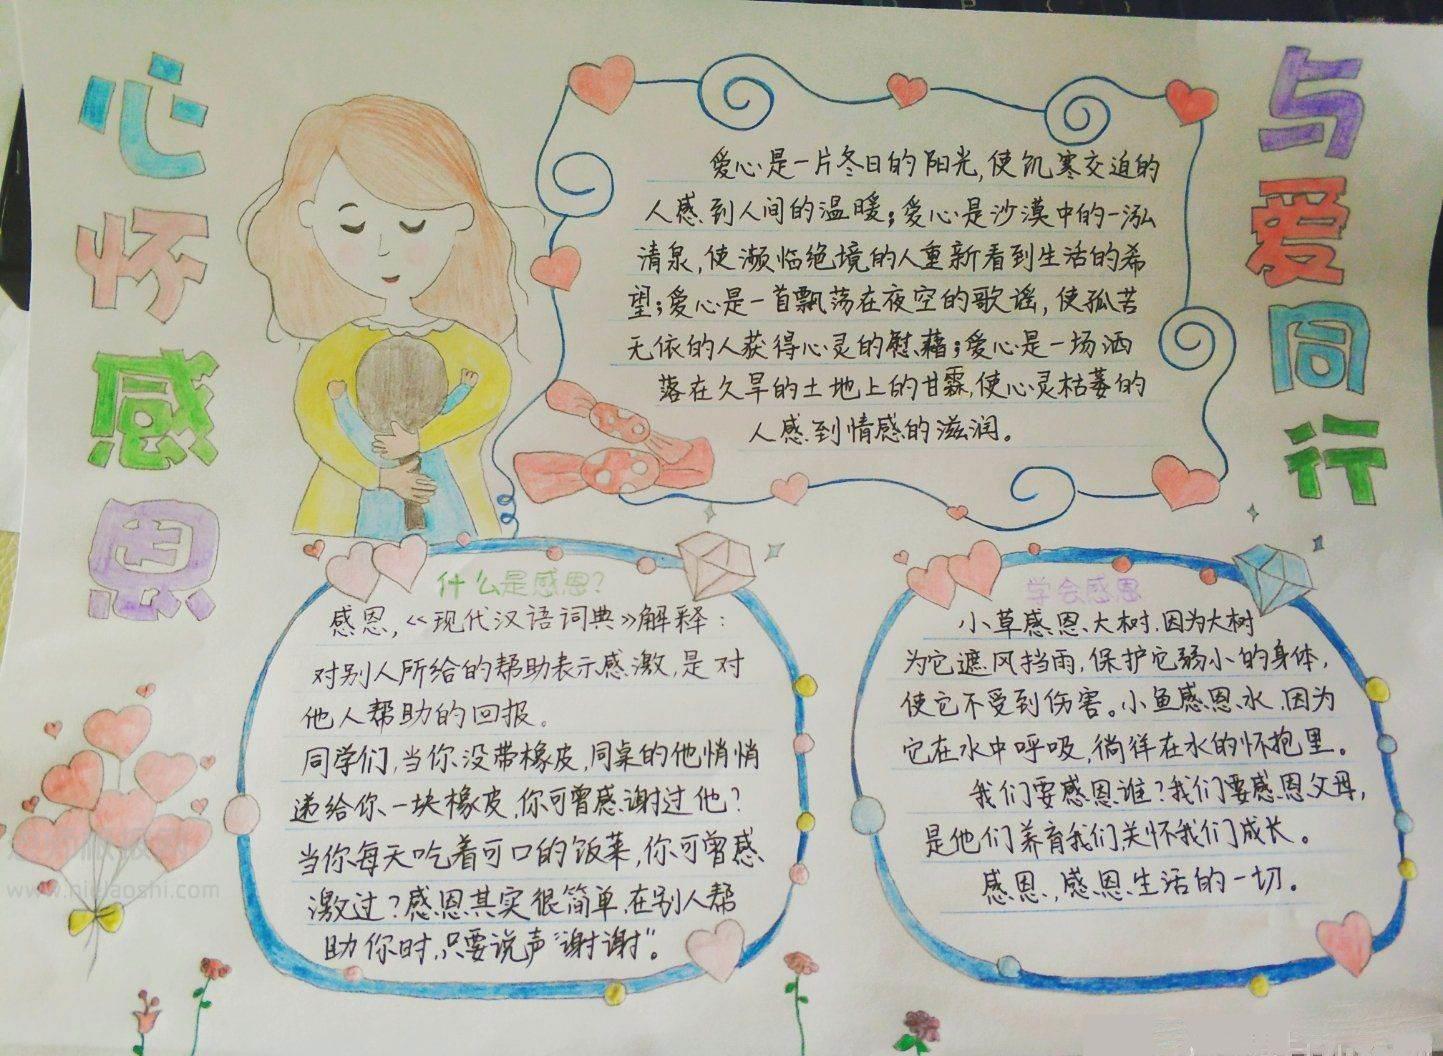 心怀感恩
与爱同行
爱心是一片冬日的阳光,使饥寒交迫的
人感到人间的温暖;爱心是沙漠中的一泓
清泉,使濒临绝境的人重新看到生活的希
望;爱心是一首飘荡在夜空的歌谣,使孤苦
无依的人获得心灵的慰藉;爱心是一场洒
落在久旱的土地上的甘霖,使心灵枯萎的
人感到情感的滋润。
什么是感恩?
感恩,《现代汉语词典》解释:
对别人所给的帮助表示感激,是对
他人帮助的回报。
同学们,当你没带橡皮,同桌的他悄悄
递给你一块橡皮,你可曾感谢过他?
当你每天吃着可口的饭菜,你可曾感
激过?感恩其实很简单,在别人帮
助你时,只要说声“谢谢”。
学会感恩
小草感恩大树,因为大树
为它遮风挡雨,保护它弱小的身体,
使它不受到伤害。小鱼感恩水,因为
它在水中呼吸,徜徉在水的怀抱里。
我们要感恩谁?我们要感恩父母,
是他们养育我们,关怀我们成长。
感恩,感恩生活的一切。